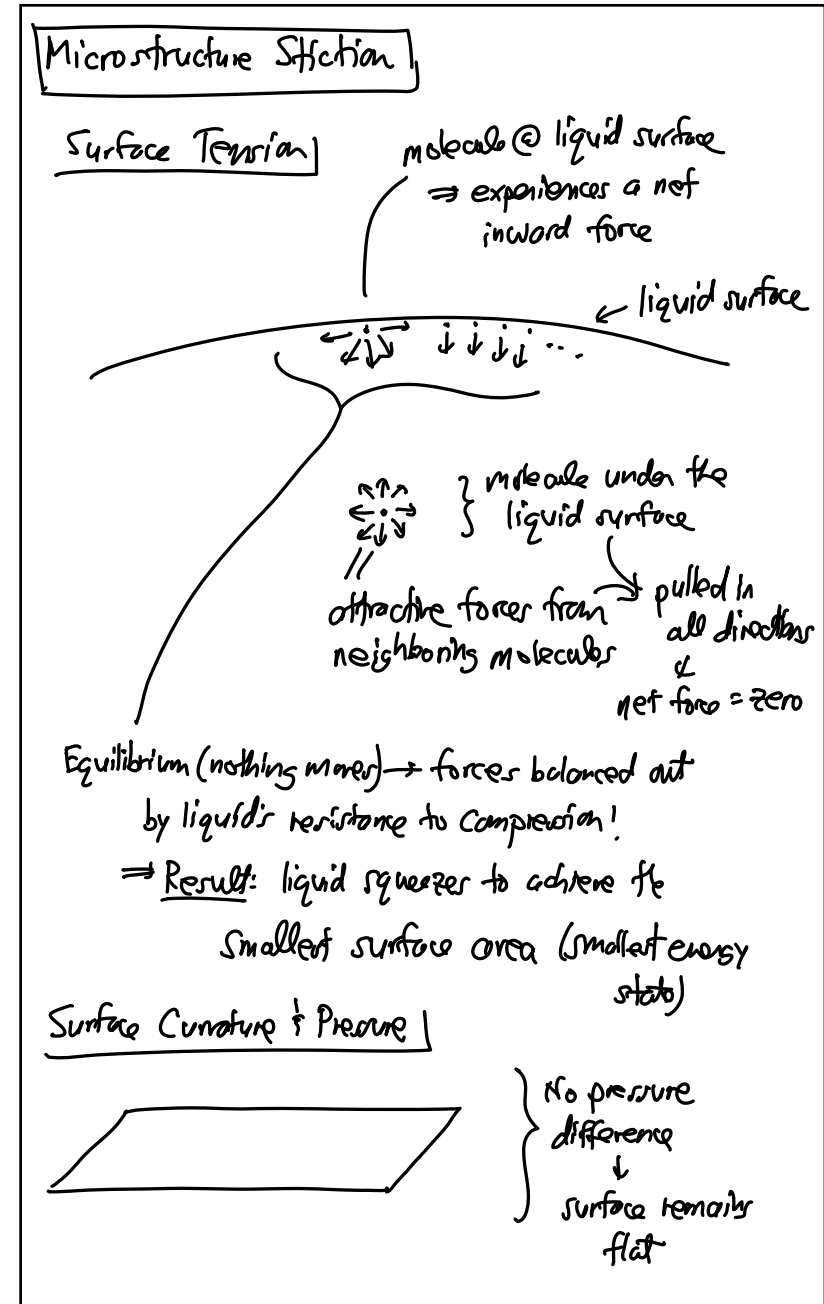 Microstructure Stiction
Surface Tension
molecule @ liquid surface
⇒ experiences a net
inward force
← liquid surface
molecule under the
liquid surface
attractive forces from
neighboring molecules
pulled in
all directions
&
net force = zero
Equilibrium (nothing moves) → forces balanced out
by liquid's resistance to compression!
⇒ Result: liquid squeezes to achieve the
smallest surface area (smallest energy
state)
Surface Curvature & Pressure
No pressure
difference
↓
surface remains
flat